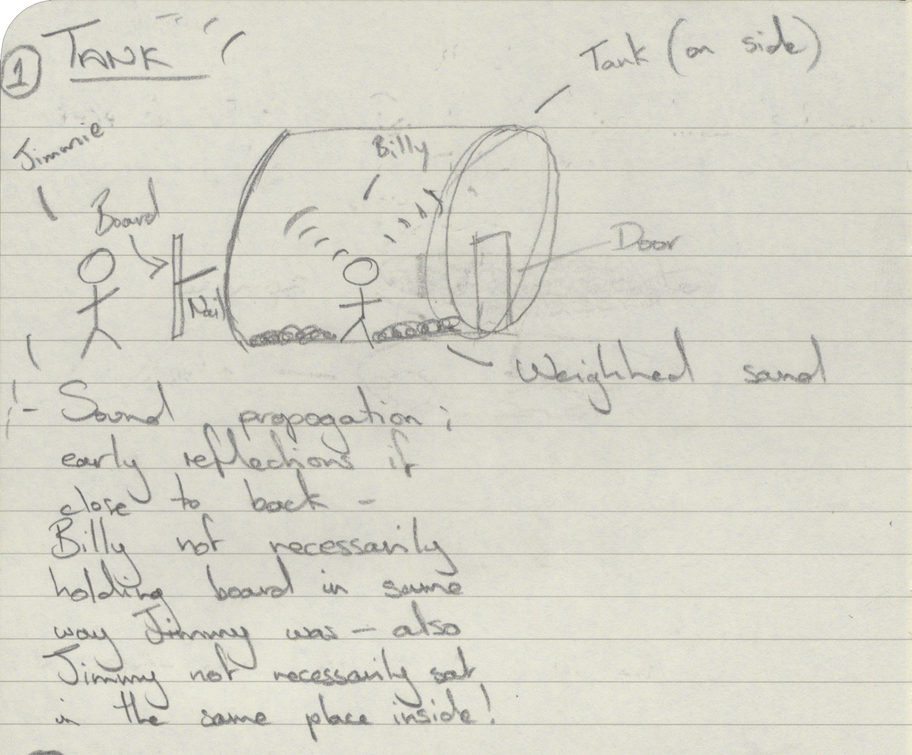 ① TANK
Tank (on side)
Jimmie
Billy
Board
Door
Nail
Weighhed sand
- Sound propogation ;
early reflections if
close to back -
Billy not necessarily
holding board in same
way Jimmy was - also
Jimmy not necessarily sat
in the same place inside!